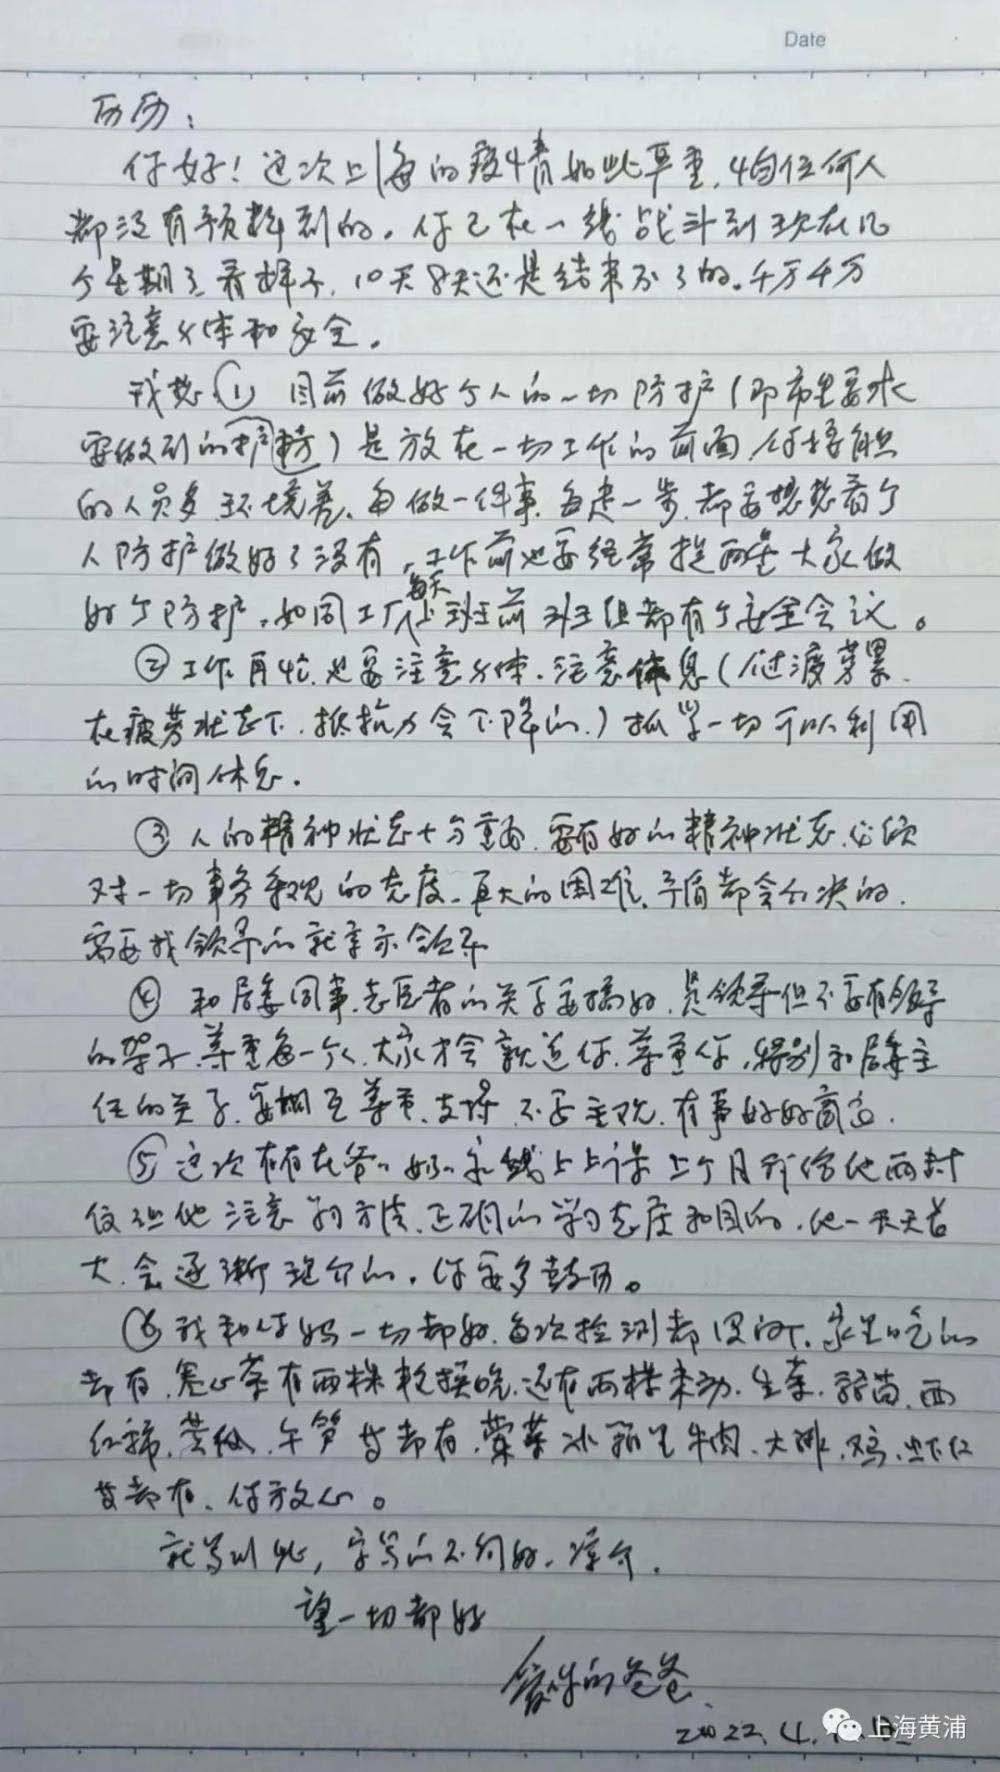 Date
历历：
你好！这次上海的疫情如此严重，恐怕任何人
都没有预料到的。你已在一线战斗到现在几
个星期了看样子，10天8天还是结束不了的。千万千万
要注意身体和安全。
我想①目前做好个人的一切防护（即市里要求
要做到的）是放在一切工作的前面，你接触
的人员多，环境差、每做一件事，每走一步，都要想想看个
人防护做好了没有，工作前也要经常提醒大家做
好个防护，如同工厂每天上班前班组都有个安全会议。
②工作再忙，也要注意身体，注意休息（过渡劳累，
在疲劳状态下，抵抗力会下降的）抓紧一切可以利用
的时间休息。
③人的精神状态十分重要，要有好的精神状态，必须
对一切事务乐观的态度，再大的困难、矛盾都会解决的，
需要找领导的就请示领导
④和居委同事、志愿者的关系要搞好，是领导但不要有领导
的架子，尊重每一个人，大家才会亲近你，尊重你，特别和居委主
任的关系，要相互尊重、支持，不要主观，有事好好商量。
⑤这次在爷爷奶奶家线上上课，上个月我给他两封
信，让他注意学习方法、正确的学习态度和目的，他一天天长
大，会逐渐理解的，你要多鼓励。
⑥我和你妈一切都好，每次检测都没问题，家里吃的
都有，卷心菜有两棵，还有两棵，生菜，鸡毛菜，西
红柿，莴笋皆都有，荤菜冰箱里牛肉、大排、鸡、虾仁
皆都有，你放心。
就写到此，字写的不何好，谅介，
望一切都好
爱你的爸爸
2022.4.
上海黄浦